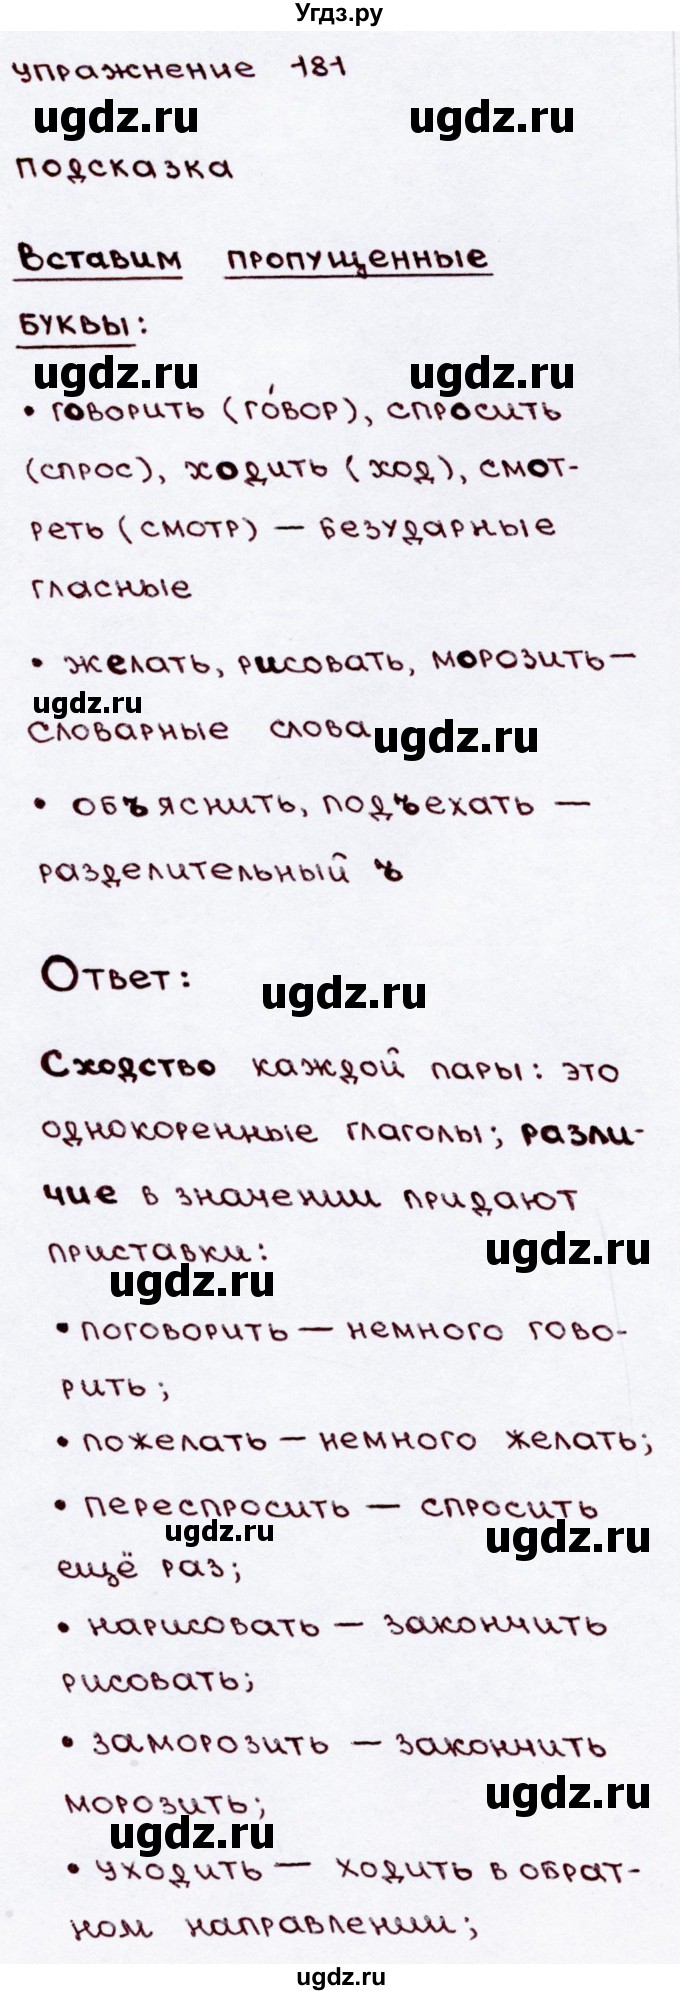 Угдз.ру
упражнение 181
ugdz.ru ugdz.ru
подсказка
Вставим пропущенные
буквы:
ugdz.ru ugdz.ru
• говорить (го́вор), спросить
(спрос), ходить (ход), смот-
реть (смотр) — безударные
гласные
• желать, рисовать, морозить —
ugdz.ru
словарные слова
ugdz.ru
• объяснить, подъехать —
разделительный ъ
Ответ:
ugdz.ru
Сходство каждой пары: это
однокоренные глаголы; разли-
чие в значении придают
приставки:
ugdz.ru
ugdz.ru
• поговорить — немного гово-
рить;
• пожелать — немного желать;
• переспросить — спросить
ugdz.ru
ugdz.ru
ещё раз;
• нарисовать — закончить
рисовать;
• заморозить — закончить
морозить;
ugdz.ru
ugdz.ru
• уходить — ходить в обрат-
ном направлении;
ugdz.ru